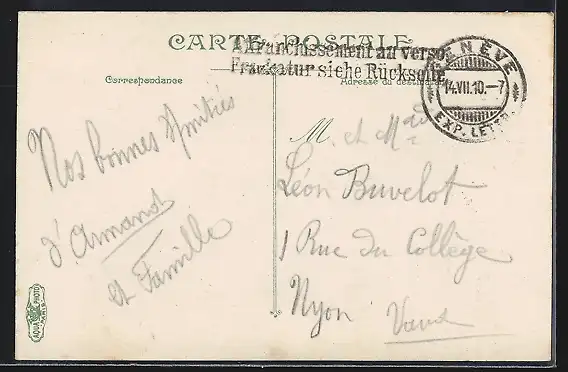 CARTE POSTALE
Affranchissement au verso
Frankatur siehe Rückseite
GENÈVE
14.VII.10.–7
EXP. LETTR.
Correspondance
Adresse du destinataire
Nos bonnes Amitiés
d'Armand
et Famille
M. et Mad
Léon Buvelot
1 Rue du Collège
Nyon Vaud
AQUA PHOTO
PARIS